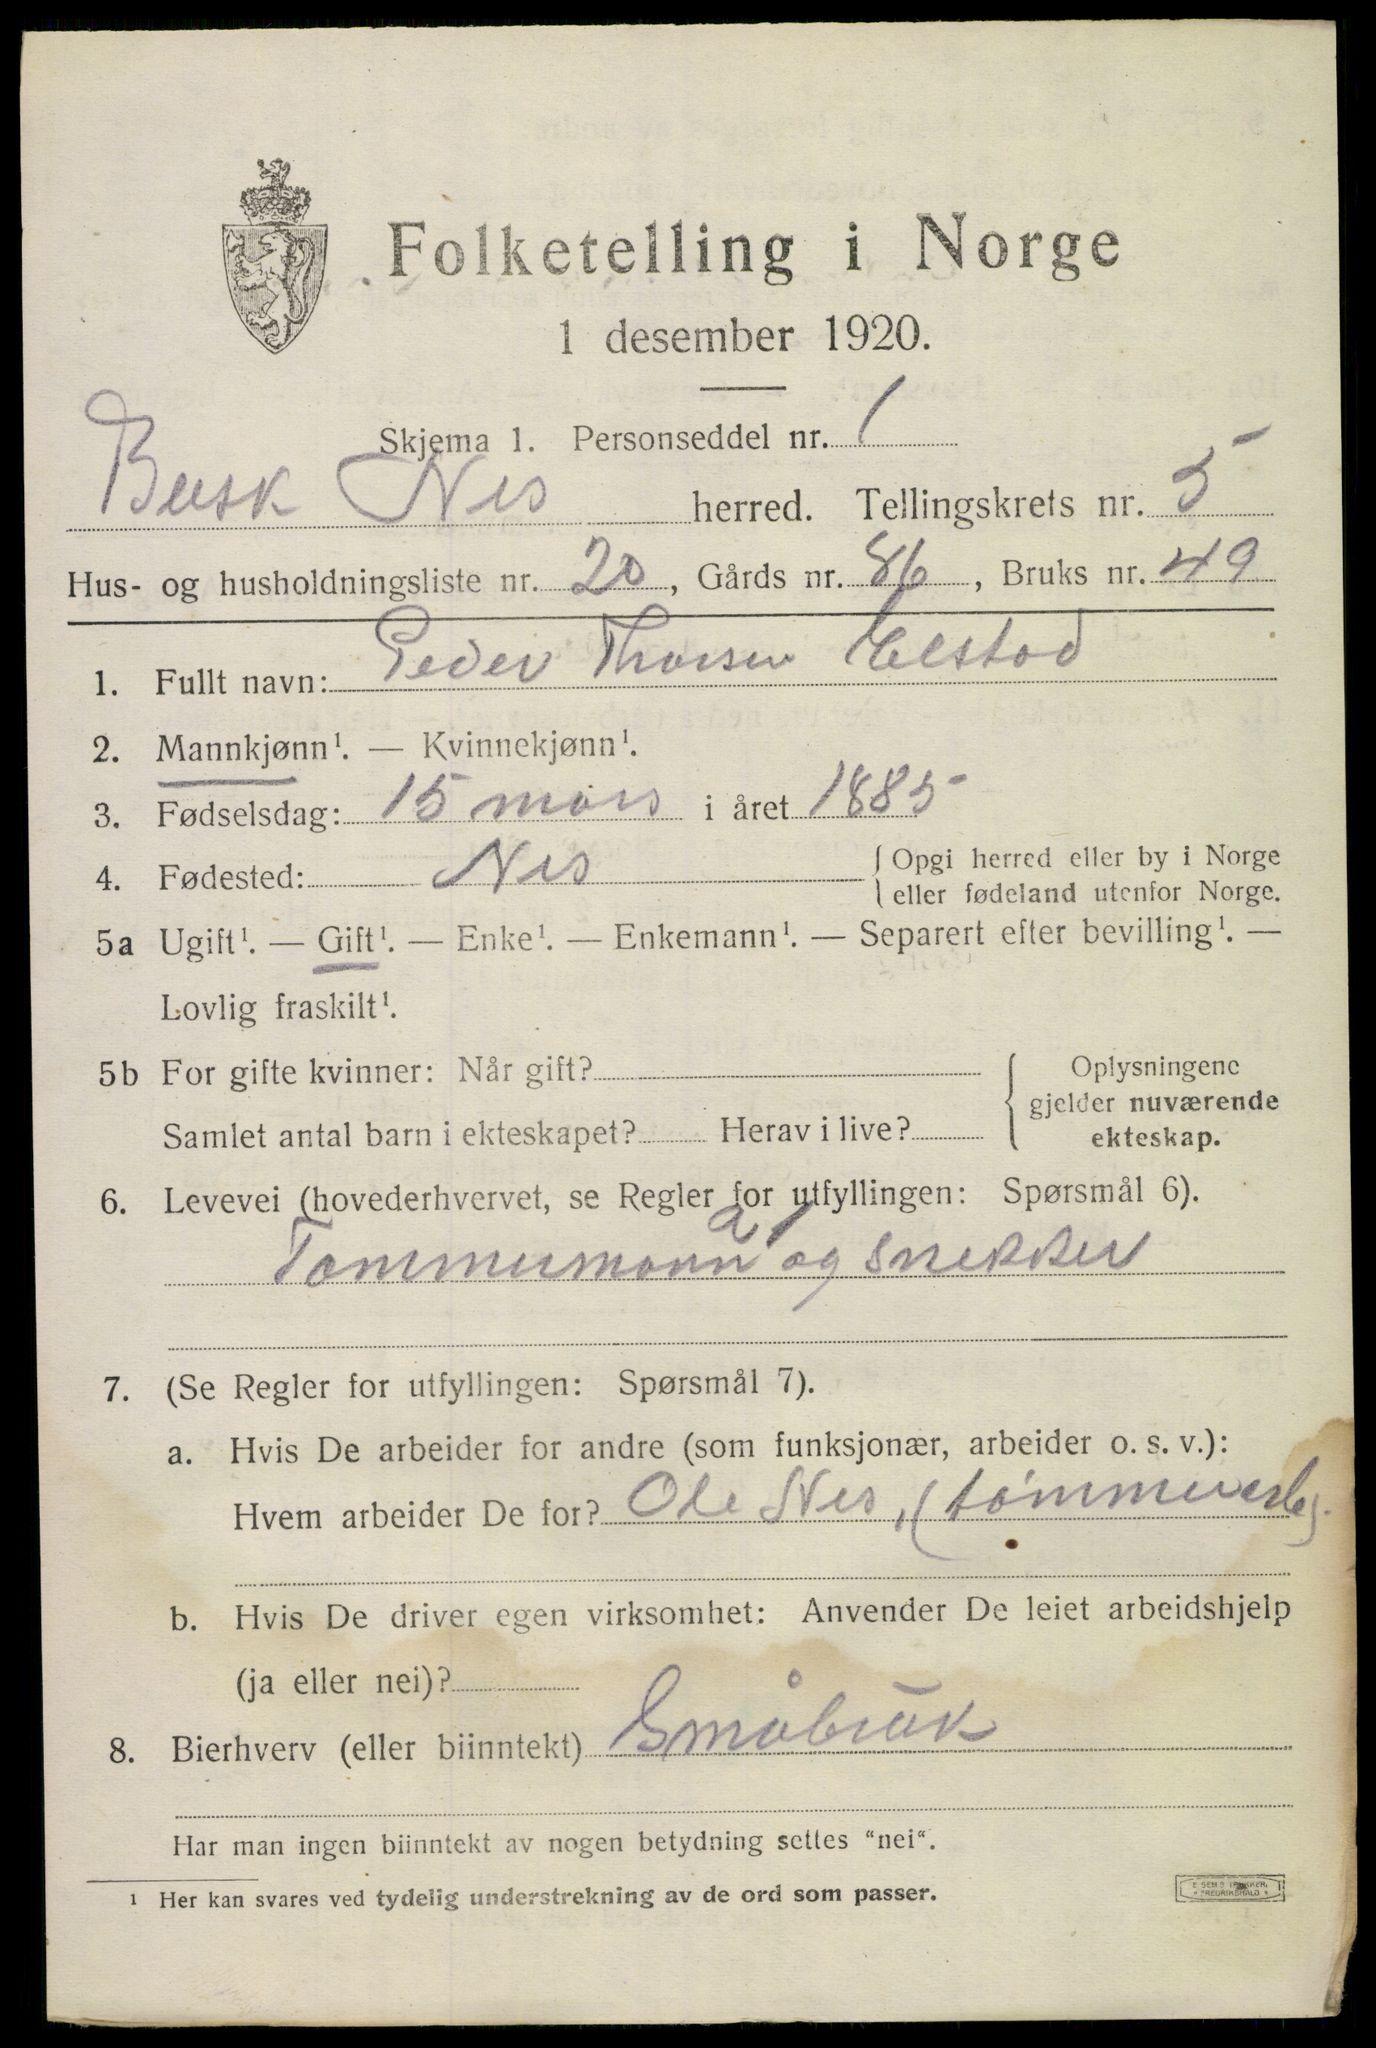 Folketelling i Norge
1 desember 1920.
Skjema 1. Personseddel nr. 1
Busk Nes herred. Tellingskrets nr. 5
Hus- og husholdningsliste nr. 20, Gårds nr. 86, Bruks nr. 49
1. Fullt navn: Peder Thorsen Elstad
2. Mannkjønn¹. — Kvinnekjønn¹.
3. Fødselsdag: 15 mars i året 1885
4. Fødested: Nes { Opgi herred eller by i Norge
eller fødeland utenfor Norge.
5a Ugift¹. — Gift¹. — Enke¹. — Enkemann¹. — Separert efter bevilling¹. —
Lovlig fraskilt¹.
5b For gifte kvinner: Når gift?
Samlet antal barn i ekteskapet? Herav i live?
{ Oplysningene
gjelder nuværende
ekteskap.
6. Levevei (hovederhvervet, se Regler for utfyllingen: Spørsmål 6).
a
Tømmermann og snekker
7. (Se Regler for utfyllingen: Spørsmål 7).
a. Hvis De arbeider for andre (som funksjonær, arbeider o. s. v.):
Hvem arbeider De for? Ole Nes,
b. Hvis De driver egen virksomhet: Anvender De leiet arbeidshjelp
(ja eller nei)?
8. Bierhverv (eller biinntekt) Småbruk
Har man ingen biinntekt av nogen betydning settes "nei".
¹ Her kan svares ved tydelig understrekning av de ord som passer.